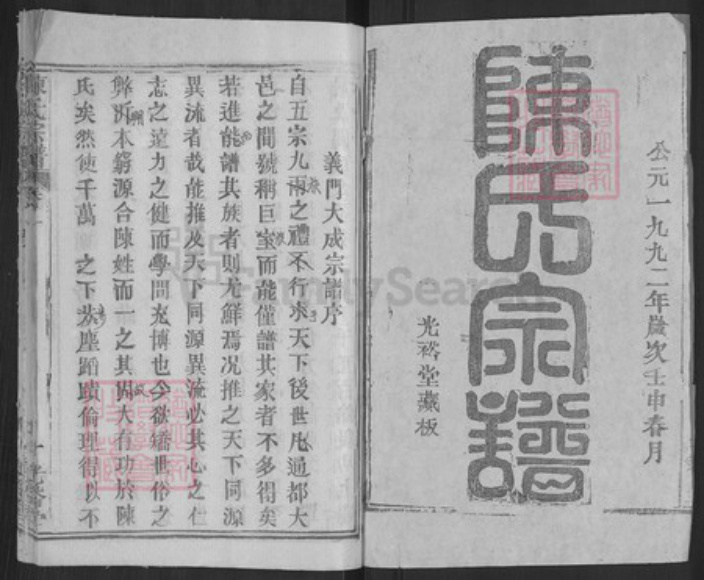 公元一九九二年歲次壬申春月
陳氏宗譜
光裕堂藏板
義門大成宗譜序
自五宗九兩之禮不行求天下後世凡通都大
邑之間號稱巨室而能僅譜其家者不多得矣
若進能譜其族者則尤鮮焉况推之天下同源
異流者哉能推及天下同源異流必其心之仁
志之遠力之健而學問充博也今欲矯世俗之
弊泝本窮源合陳姓而一之其閎大有功於陳
氏矣然使千萬 之下 塵蹈 倫理得以不
陳氏宗譜
FamilySearch